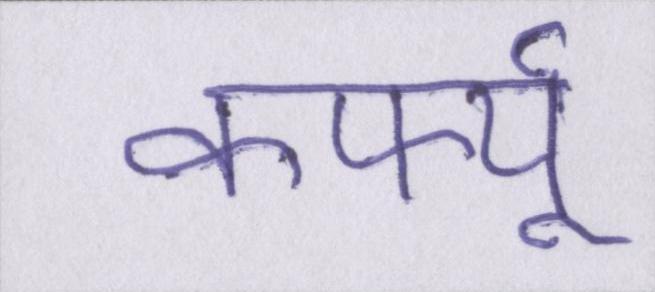 कर्फ्यू